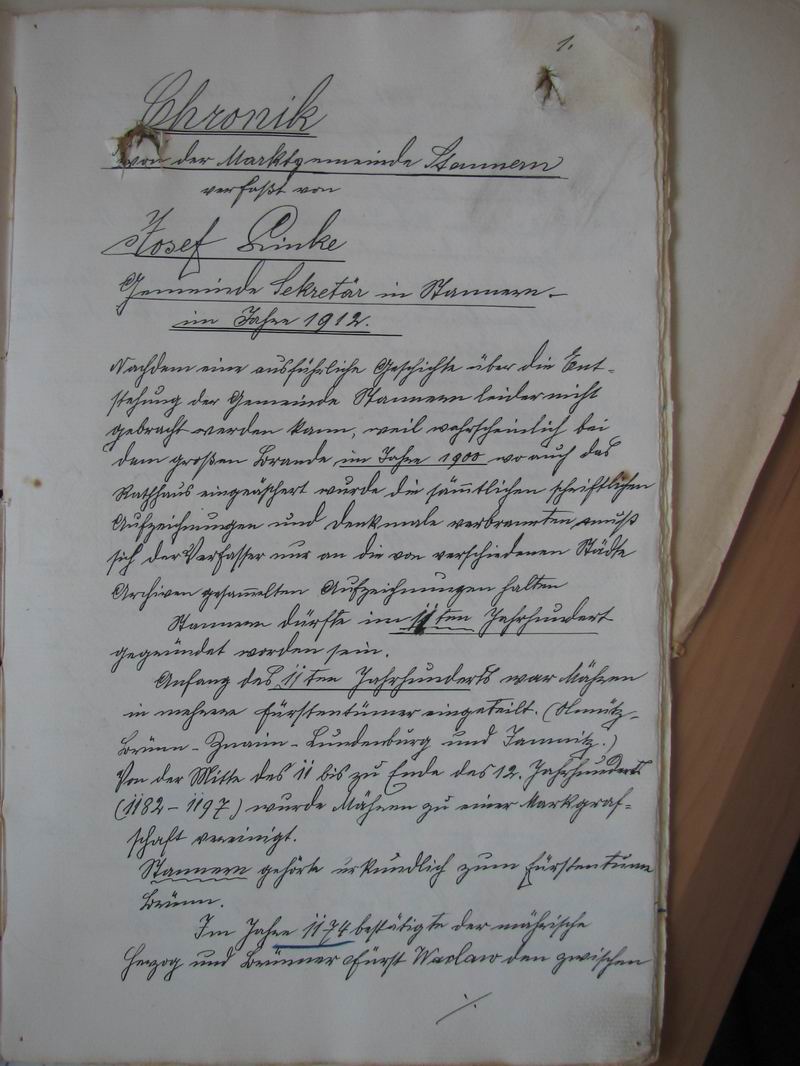 1.
Chronik
von der Marktgemeinde Stannern
verfaßt von
Josef Linke
Gemeinde Sekretär in Stannern.-
im Jahre 1912.
Nachdem eine ausführliche Geschichte über die Ent-
stehung der Gemeinde Stannern leider nicht
gebracht werden kann, weil wahrscheinlich bei
dem großen Brande im Jahre 1900 wo auch das
Rathhaus eingeäschert wurde die sämtlichen schriftlichen
Aufzeichnungen und Denkmale verbrannten, muß
sich der Verfasser nur an die von verschiedenen Städte
Archiven gesammelten Aufzeichnungen halten
Stannern dürfte im 11ten Jahrhundert
gegründet worden sein.
Anfang des 11ten Jahrhunderts war Mähren
in mehrere Fürstentümer eingeteilt. (Olmütz-
Brünn-Znaim-Lundenburg und Jamnitz.)
Von der Mitte des 11 bis zu Ende des 12. Jahrhunderts
(1182-1197) wurde Mähren zu einer Markgraf-
schaft vereinigt.
Stannern gehörte urkundlich zum Fürstentume
Brünn.
Im Jahre 1174 bestätigte der mährische
Herzog und Brünner Fürst Waclaw den zwischen
./.